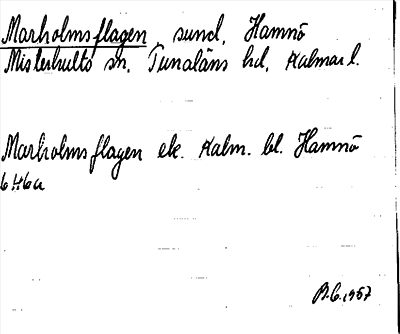 Marholmsflagen, sund, Hamnö
Misterhults sn, Tunaläns hd, Kalmar l.
Marholmsflagen ek. Kalm. bl. Hamnö
6H6a
B.G. 1957